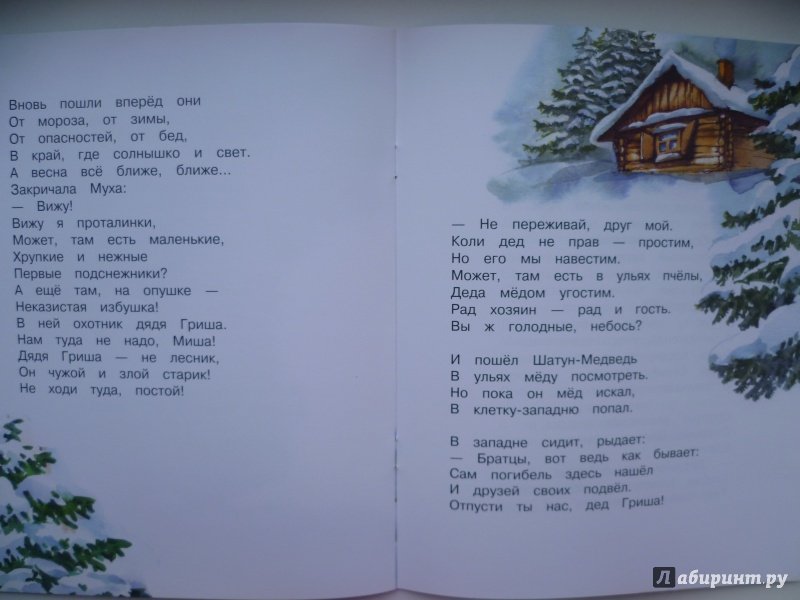 Вновь пошли вперёд они
От мороза, от зимы,
От опасностей, от бед,
В край, где солнышко и свет.
А весна всё ближе, ближе...
Закричала Муха:
— Вижу!
Вижу я проталинки,
Может, там есть маленькие,
Хрупкие и нежные
Первые подснежники?
А ещё там, на опушке —
Неказистая избушка!
В ней охотник дядя Гриша.
Нам туда не надо, Миша!
Дядя Гриша — не лесник,
Он чужой и злой старик!
Не ходи туда, постой!
— Не переживай, друг мой.
Коли дед не прав — простим,
Но его мы навестим.
Может, там есть в ульях пчёлы,
Деда мёдом угостим.
Рад хозяин — рад и гость.
Вы ж голодные, небось?
И пошёл Шатун-Медведь
В ульях мёду посмотреть.
Но пока он мёд искал,
В клетку-западню попал.
В западне сидит, рыдает:
— Братцы, вот ведь как бывает:
Сам погибель здесь нашёл
И друзей своих подвёл.
Отпусти ты нас, дед Гриша!
Лабиринт.ру